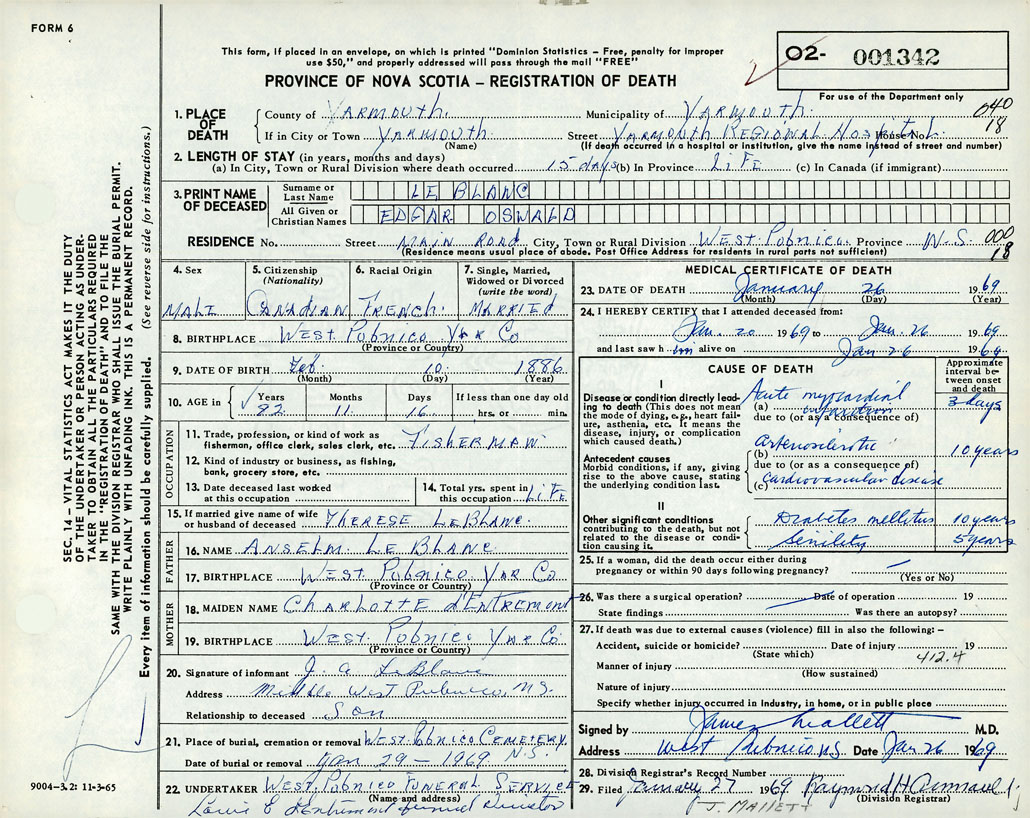 FORM 6
This form, if placed in an envelope, on which is printed "Dominion Statistics – Free, penalty for improper
use $50," and properly addressed will pass through the mail "FREE"
PROVINCE OF NOVA SCOTIA – REGISTRATION OF DEATH
O2- 001342
For use of the Department only
040
18
1. PLACE OF DEATH
County of YARMOUTH. Municipality of YARMOUTH.
If in City or Town YARMOUTH Street YARMOUTH REGIONAL HOSPITAL House No.
(Name) (If death occurred in a hospital or institution, give the name instead of street and number)
2. LENGTH OF STAY (in years, months and days)
(a) In City, Town or Rural Division where death occurred 15 days (b) In Province LIFE (c) In Canada (if immigrant)
3. PRINT NAME OF DECEASED
Surname or Last Name LE BLANC
All Given or Christian Names EDGAR OSWALD
RESIDENCE No. Street MAIN ROAD City, Town or Rural Division WEST PUBNICO. Province N.S. 000
18
(Residence means usual place of abode. Post Office Address for residents in rural parts not sufficient)
4. Sex
MALE
5. Citizenship
(Nationality)
CANADIAN
6. Racial Origin
FRENCH.
7. Single, Married,
Widowed or Divorced
(write the word)
MARRIED
8. BIRTHPLACE WEST PUBNICO YAR CO
(Province or Country)
9. DATE OF BIRTH Feb 10 1886
(Month) (Day) (Year)
10. AGE in Years Months Days If less than one day old
82 11 16 hrs. or min.
OCCUPATION
11. Trade, profession, or kind of work as
fisherman, office clerk, sales clerk, etc. FISHERMAN
12. Kind of industry or business, as fishing,
bank, grocery store, etc.
13. Date deceased last worked
at this occupation
14. Total yrs. spent in
this occupation LIFE
15. If married give name of wife
or husband of deceased THERESE LEBLANC.
FATHER
16. NAME ANSELM LE BLANC
17. BIRTHPLACE WEST PUBNICO YAR CO
(Province or Country)
MOTHER
18. MAIDEN NAME CHARLOTTE d'ENTREMONT
19. BIRTHPLACE WEST. PUBNICO YAR CO
(Province or Country)
20. Signature of informant J. A LeBlanc
Address Middle West Pubnico, N.S.
Relationship to deceased Son
21. Place of burial, cremation or removal WEST PUBNICO CEMETERY
N.S
Date of burial or removal Jan 29 – 1969
22. UNDERTAKER WEST. PUBNICO FUNERAL SERVICE
(Name and address)
Louis E d'Entremont funeral Director
MEDICAL CERTIFICATE OF DEATH
23. DATE OF DEATH January 26 1969
(Month) (Day) (Year)
24. I HEREBY CERTIFY that I attended deceased from:
Jan. 20 1969 to Jan. 26 1969
and last saw him alive on Jan 26 1969
CAUSE OF DEATH
Approximate interval between onset and death
I
Disease or condition directly leading to death (This does not mean the mode of dying, e.g., heart failure, asthenia, etc. It means the disease, injury, or complication which caused death.)
(a) Acute myocardial infarction 3 days
due to (or as a consequence of)
Antecedent causes
Morbid conditions, if any, giving rise to the above cause, stating the underlying condition last.
(b) Arteriosclerotic 10 years
due to (or as a consequence of)
(c) Cardiovascular disease
II
Other significant conditions
contributing to the death, but not related to the disease or condition causing it.
Diabetes mellitus 10 years
Senility 5 years
25. If a woman, did the death occur either during
pregnancy or within 90 days following pregnancy?
(Yes or No)
26. Was there a surgical operation? Date of operation 19
State findings Was there an autopsy?
27. If death was due to external causes (violence) fill in also the following: –
Accident, suicide or homicide? Date of injury 19
(State which) 412.4
Manner of injury
(How sustained)
Nature of injury
Specify whether injury occurred in Industry, in home, or in public place
Signed by James Mallett M.D.
Address West Pubnico N.S. Date Jan 26 1969
28. Division Registrar's Record Number
29. Filed January 27 1969 Raymond H
(Division Registrar)
J. MALLETT
SEC. 14 – VITAL STATISTICS ACT MAKES IT THE DUTY
OF THE UNDERTAKER OR PERSON ACTING AS UNDER-
TAKER TO OBTAIN ALL THE PARTICULARS REQUIRED
IN THE "REGISTRATION OF DEATH" AND TO FILE THE
SAME WITH THE DIVISION REGISTRAR WHO SHALL ISSUE THE BURIAL PERMIT.
WRITE PLAINLY WITH UNFADING INK. THIS IS A PERMANENT RECORD.
Every item of information should be carefully supplied. (See reverse side for instructions.)
9004-3.2: 11-3-65